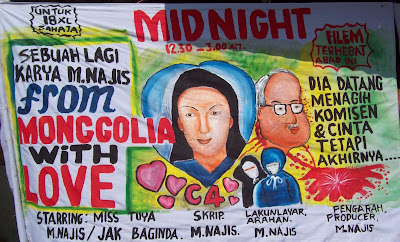 UNTUK
18XL
SAHAJA
MIDNIGHT
12.30 - 3.00 AM.
FILEM
TERHEBAT
ABAD INI
SEBUAH LAGI
KARYA M.NAJIS
from
MONGGOLIA
WITH
LOVE
DIA DATANG
MENAGIH
KOMISEN
& CINTA
TETAPI
AKHIRNYA...
C4
STARRING: MISS TUYA
M.NAJIS / JAK BAGINDA.
SKRIP.
M.NAJIS.
LAKUNLAYAR,
ARAHAN.
M.NAJIS
PENGARAH,
PRODUCER,
M.NAJIS